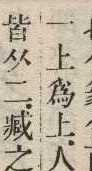 一上爲上人
皆从二臧之